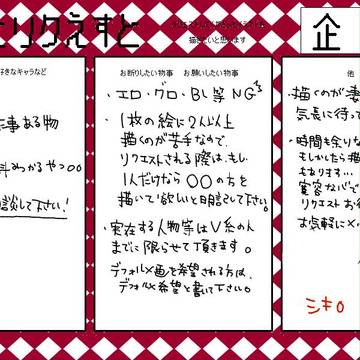 たリクえすと
企
好きなキャラなど
事ある物
談して下さい!
お断りしたい物事 お願いしたい物事
・エロ・グロ・BL等NG
・1枚の絵に2人以上
描くのが苦手なので、
リクエストされる際は、もし
1人だけなら〇〇の方を
描いて欲しいと明記して下さい。
・実在する人物等はV系の人
までに限らせて頂きます。
デフォルメ画を希望される方は、
デフォルメ希望と書いて下さい。
他
・描くのが凄
気長に待って
・時間を余りな
もしかしたら描
あります…
リクエストお待
お気軽に